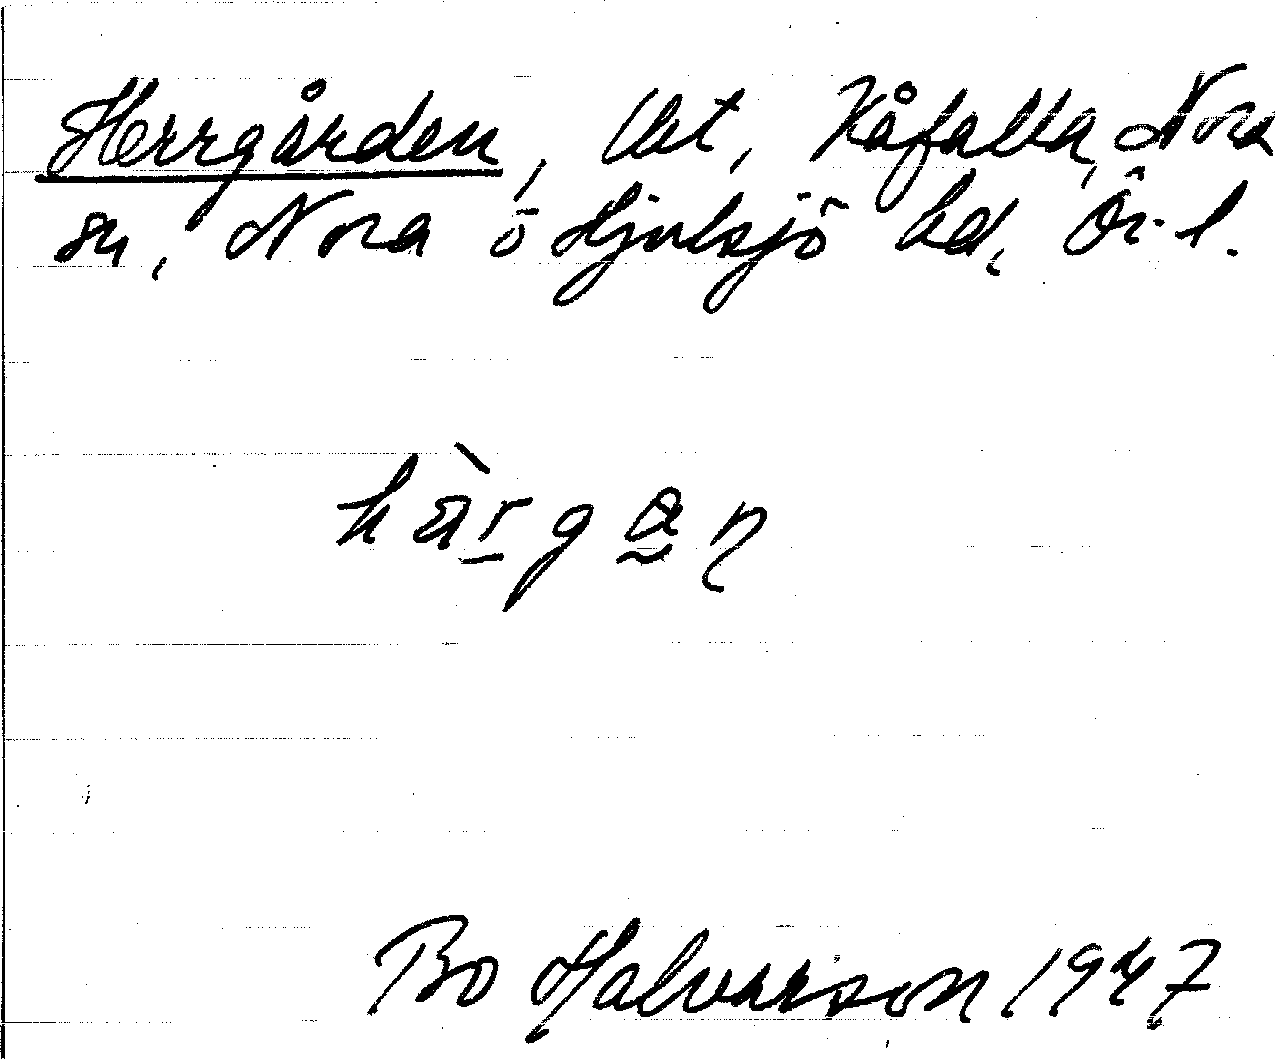 Herrgården, lht, Kåfalla, Nora
sn, Nora o Hjulsjö hd, Ör. l.
hàrgan
Bo Halvarson 1947